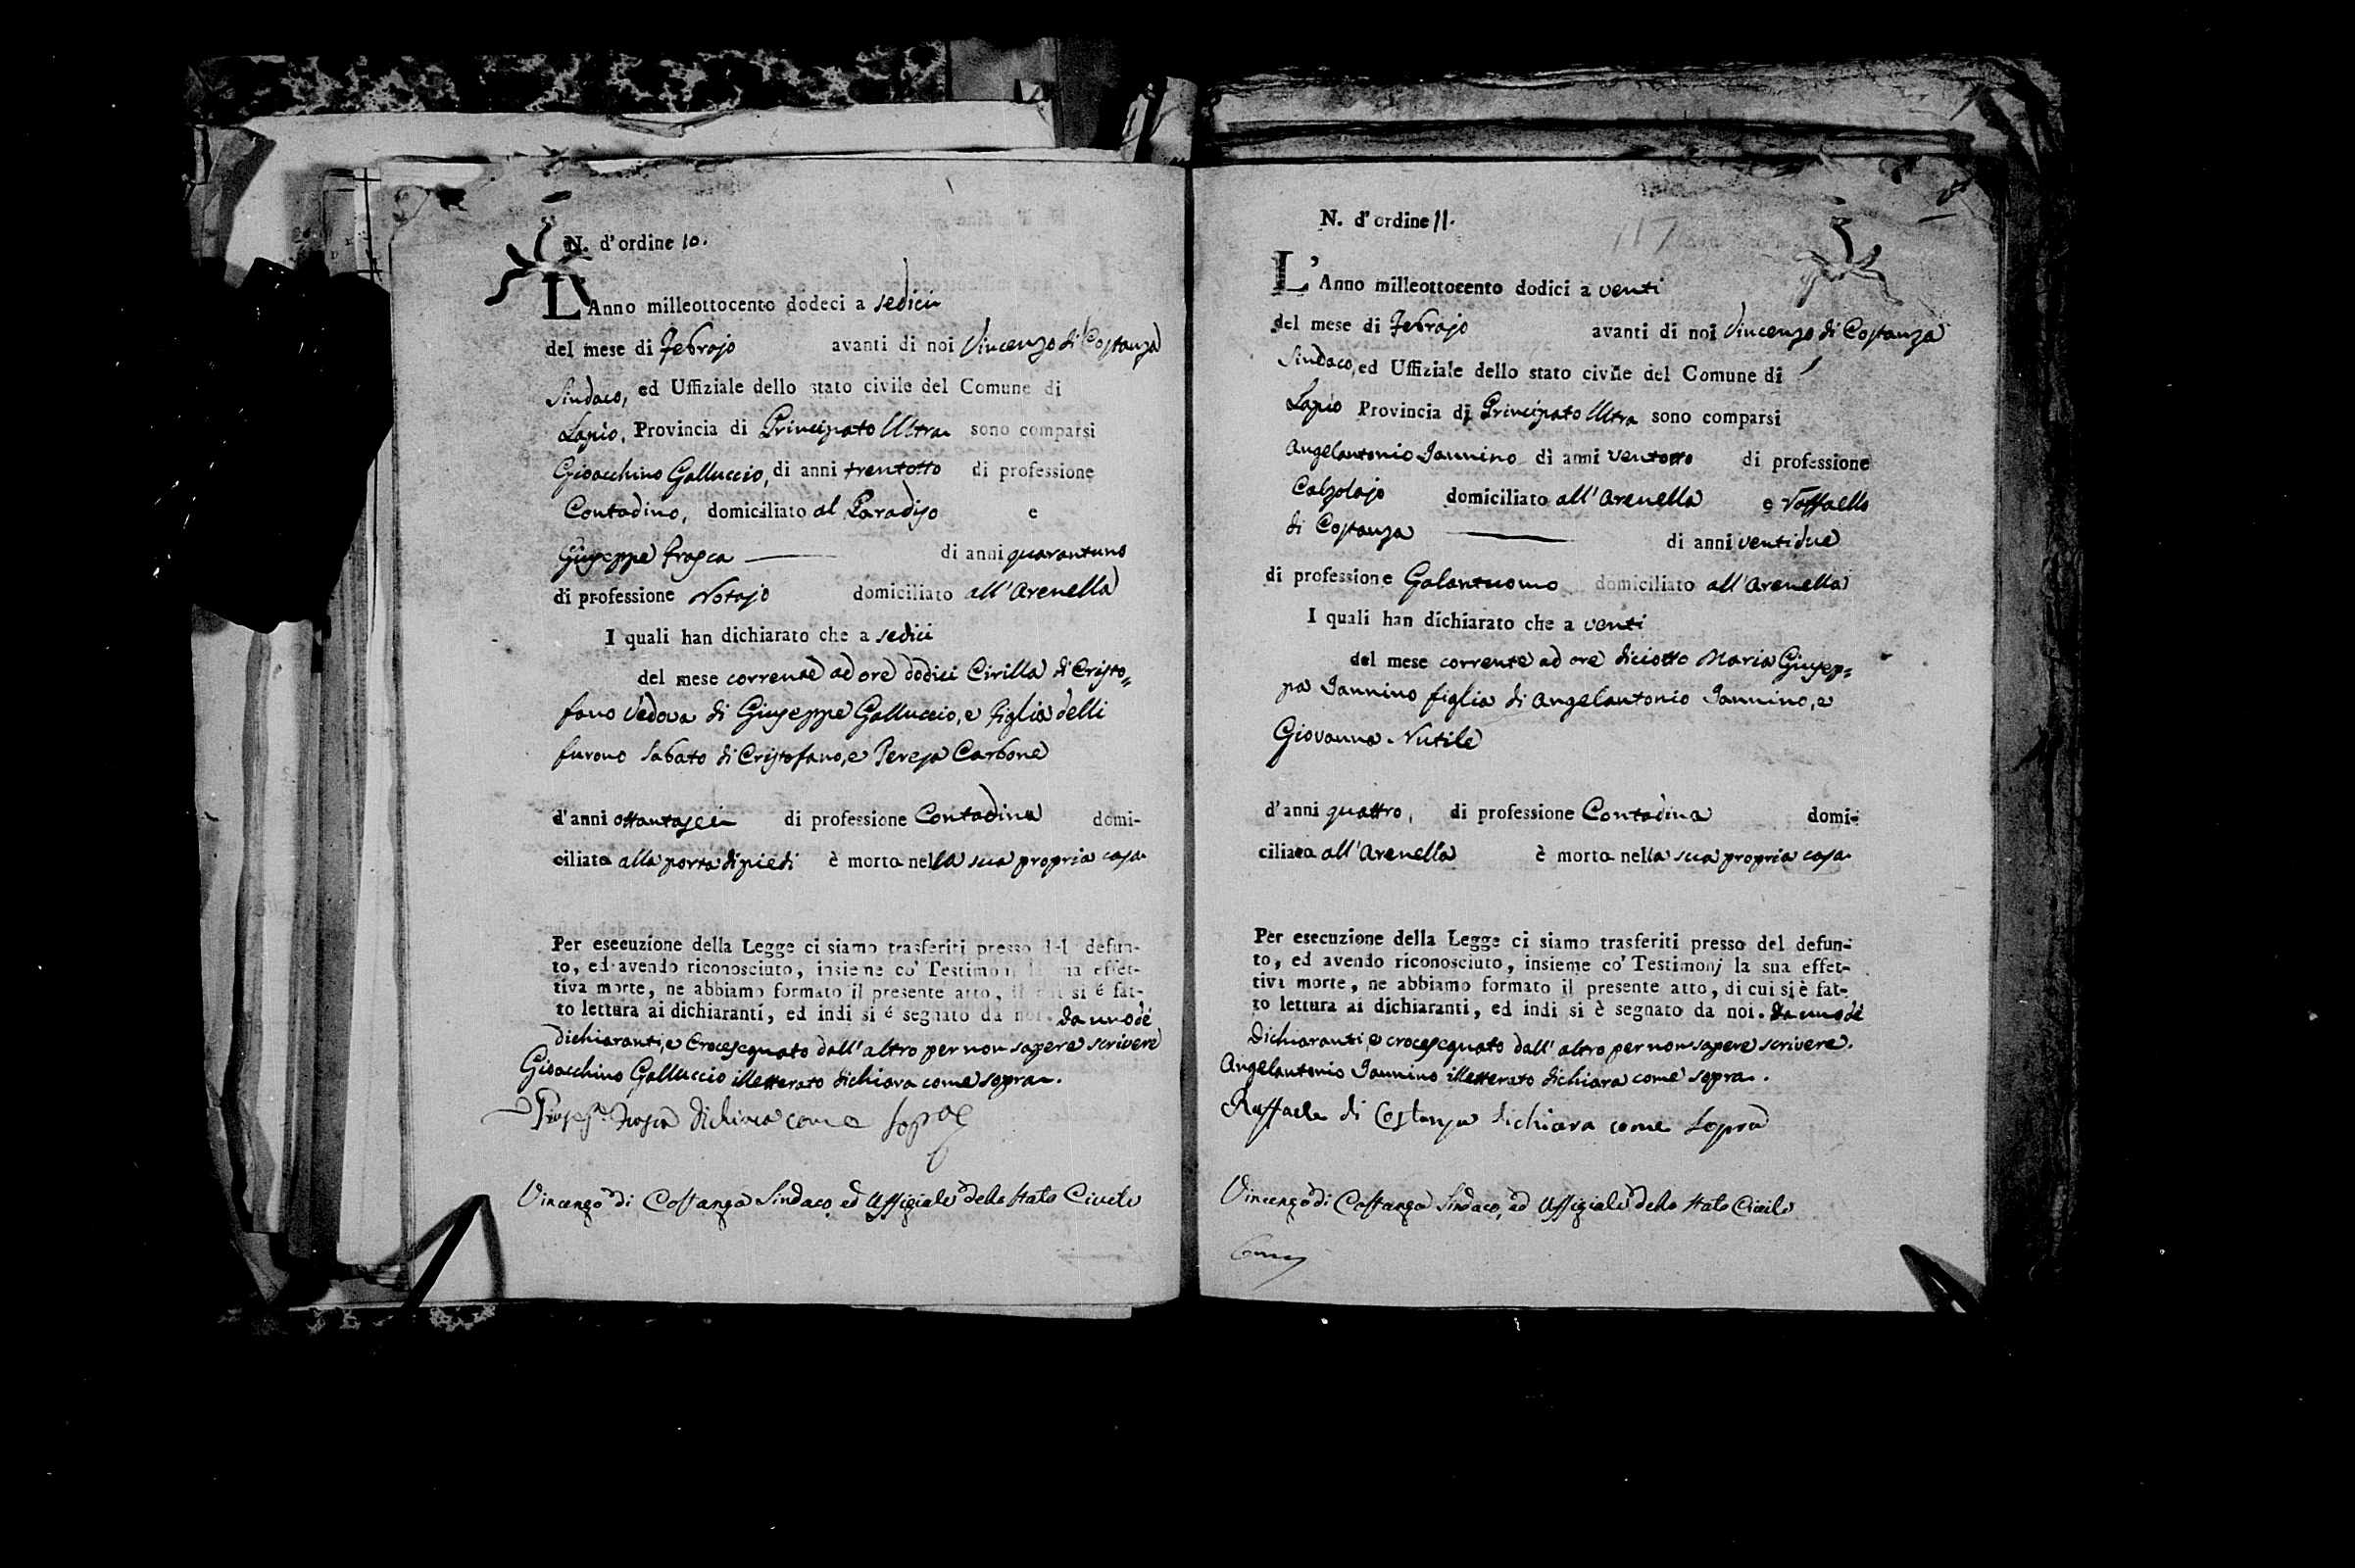 N. d'ordine 10.
L'Anno milleottocento dodeci a sedici
del mese di Febrajo avanti di noi Vincenzo di Costanza
Sindaco, ed Uffiziale dello stato civile del Comune di
Lapio, Provincia di Principato Ultra sono comparsi
Gioacchino Galluccio, di anni trentotto di professione
Contadino, domiciliato al Paradiso e
Giuseppe Trosca di anni quarantuno
di professione Notajo domiciliato all'Arenella
I quali han dichiarato che a sedici
del mese corrente ad ore dodici Cirilla di Cristo=
fano Vedova di Giuseppe Galluccio, e figlia delli
furono Sabato di Cristofano, e Teresa Carbone
d'anni ottantasei di professione Contadina domi-
ciliata alla porta di piedi è morta nella sua propria casa
Per esecuzione della Legge ci siamo trasferiti presso del defun-
to, ed avendo riconosciuto, insieme co' Testimonj la sua effet-
tiva morte, ne abbiamo formato il presente atto, di cui si é fat-
to lettura ai dichiaranti, ed indi si é segnato da noi. da uno dé
dichiaranti, e Crocesegnato dall'altro per non sapere scrivere
Gioacchino Galluccio illetterato dichiara come sopra.
Trosca dichiara come sopra
Vincenzo di Costanza Sindaco, ed Uffiziale dello Stato Civile
N. d'ordine 11.
117
L'Anno milleottocento dodici a venti
del mese di Febrajo avanti di noi Vincenzo di Costanza
Sindaco, ed Uffiziale dello stato civile del Comune di
Lapio Provincia di Principato Ultra sono comparsi
Angelantonio Iannino di anni ventotto di professione
Calzolajo domiciliato all'Arenella e Raffaello
di Costanza di anni ventidue
di professione Galantuomo domiciliato all'Arenella
I quali han dichiarato che a venti
del mese corrente ad ore diciotto Maria Giusep=
pa Iannino figlia di Angelantonio Iannino, e
Giovanna Nutile
d'anni quattro, di professione Contadina domi-
ciliata all'Arenella è morta nella sua propria casa
Per esecuzione della Legge ci siamo trasferiti presso del defun-
to, ed avendo riconosciuto, insieme co' Testimonj la sua effet-
tiva morte, ne abbiamo formato il presente atto, di cui si è fat-
to lettura ai dichiaranti, ed indi si è segnato da noi. da uno dé
dichiaranti, e crocesegnato dall'altro per non sapere scrivere.
Angelantonio Iannino illetterato dichiara come sopra.
Raffaele di Costanza dichiara come sopra
Vincenzo di Costanza Sindaco, ed Uffiziale dello Stato Civile